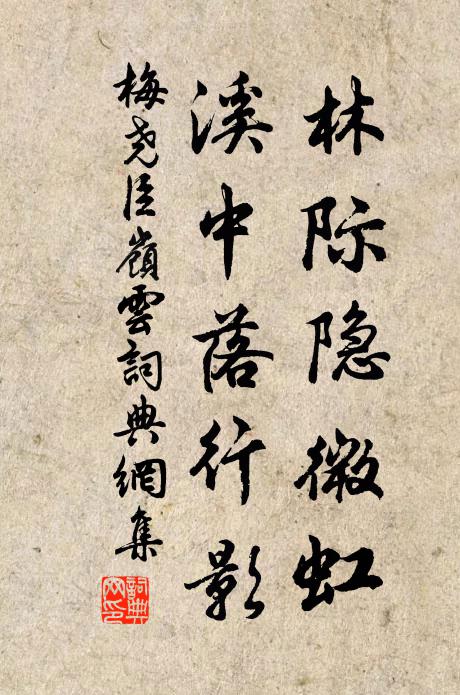 林际隐微虹
溪中落行影
梅尧臣嶺雲詞典網集
詞典
网印